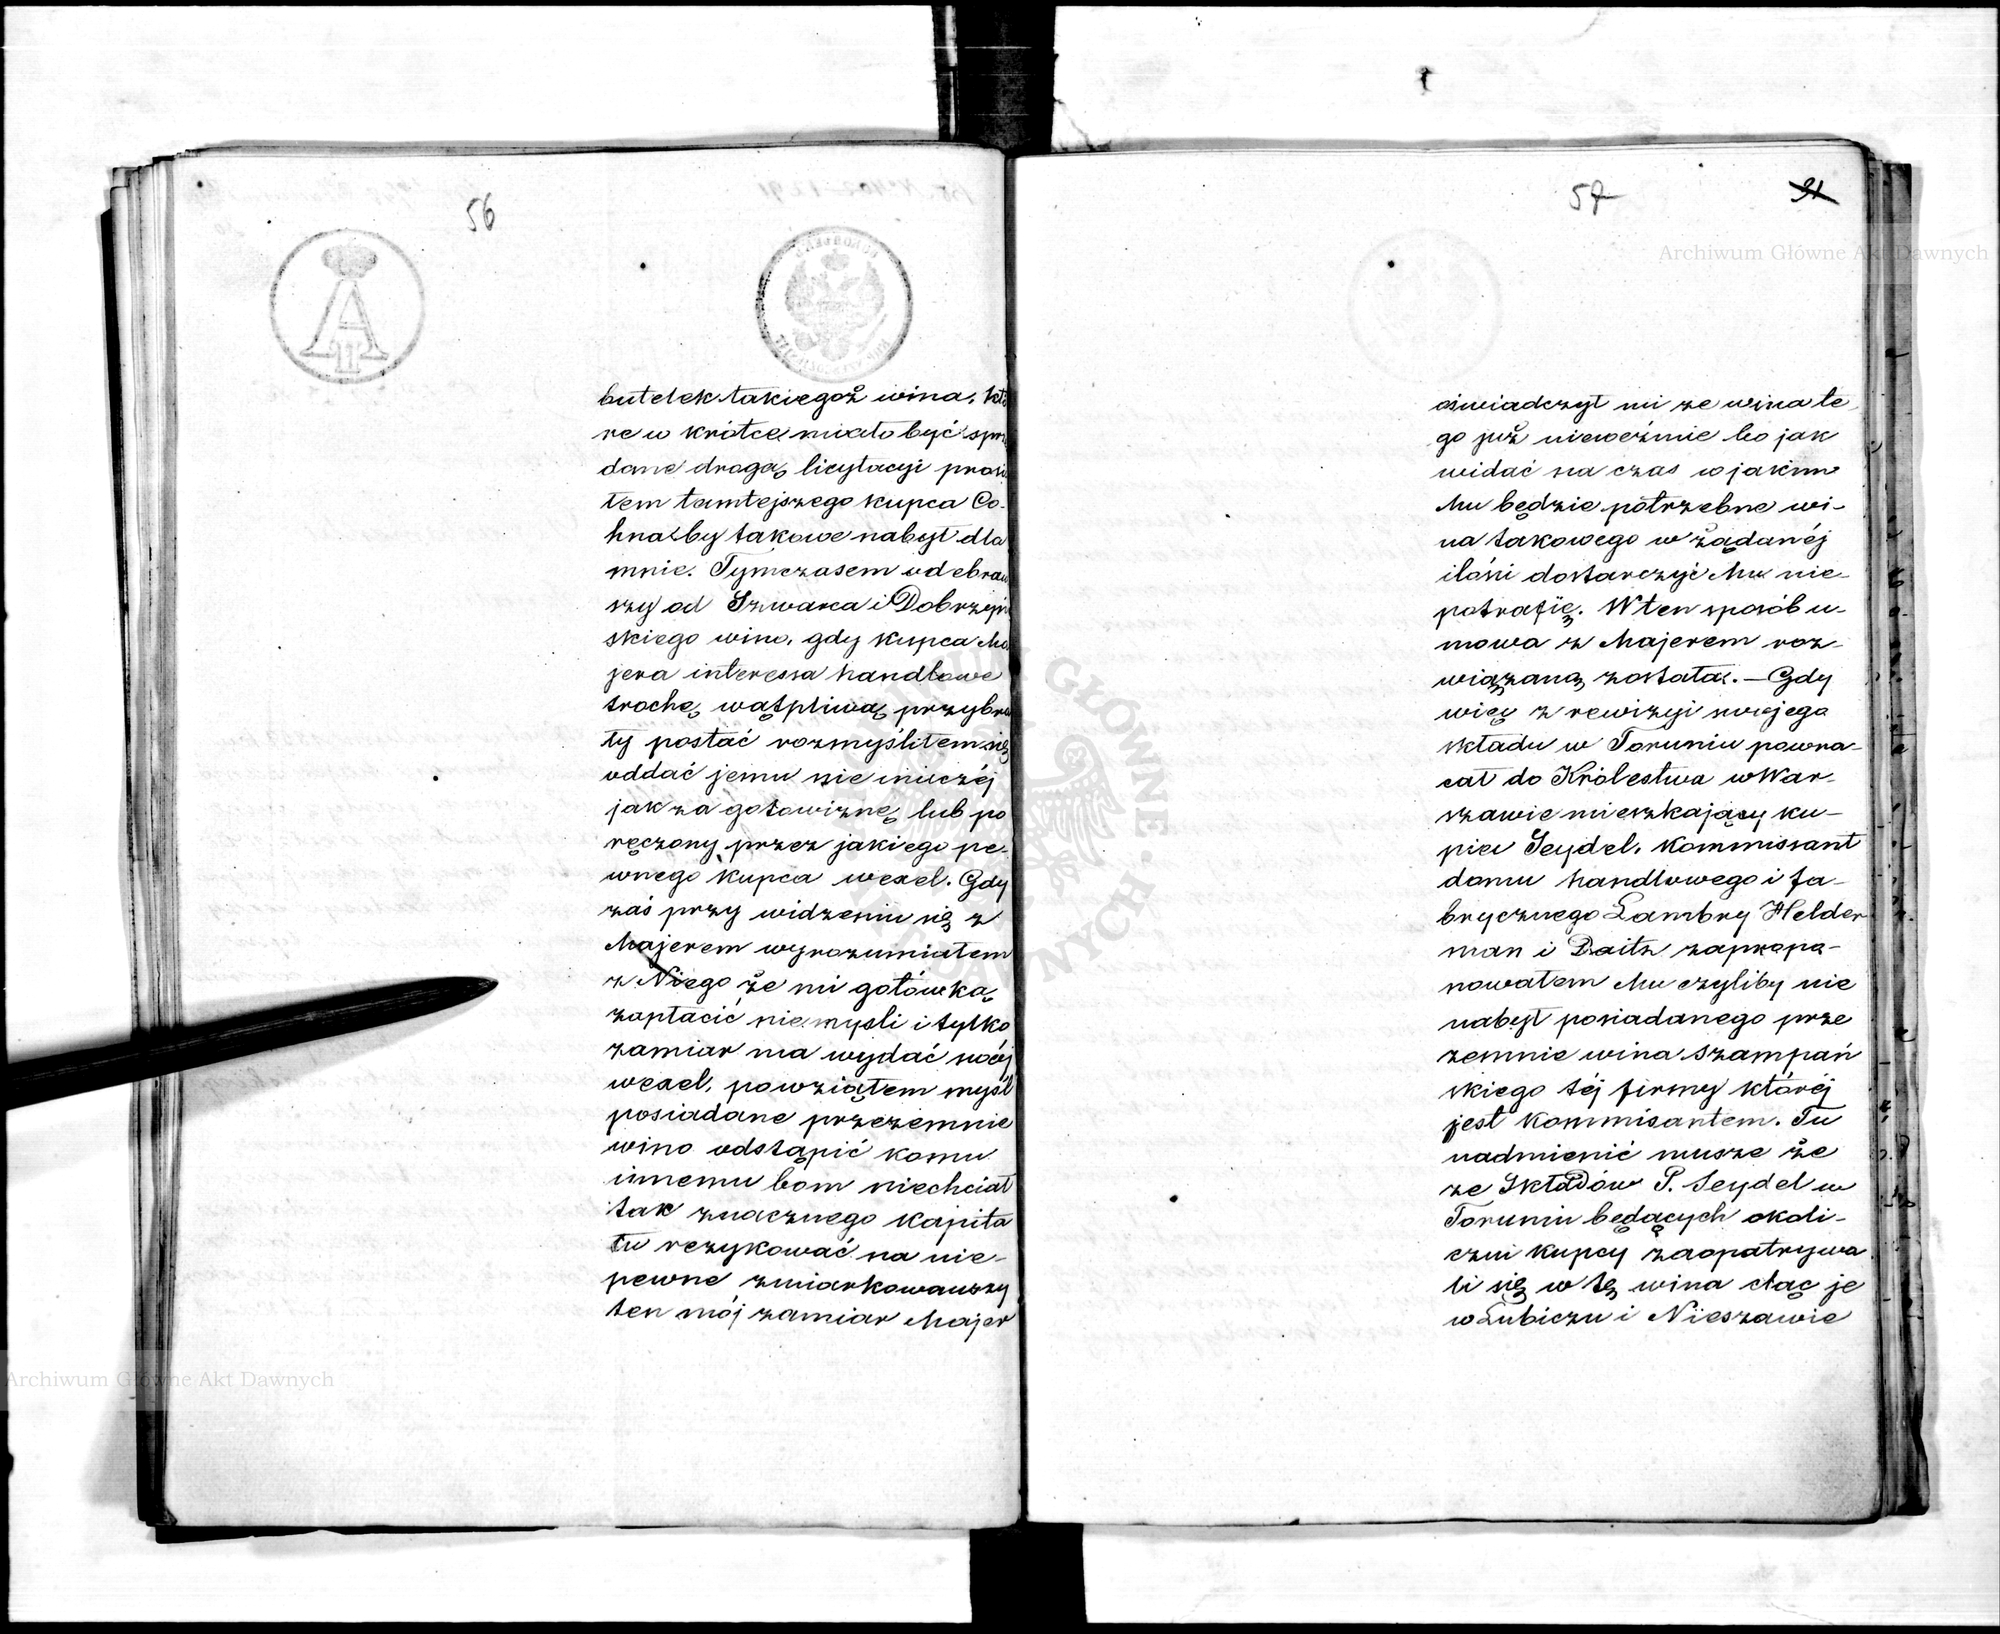 56
butelek takiegoż wina, któ
re w krótce miało być sprze
dane drogą licytacyi prosi
łem tamtejszego kupca Co-
hna by takowe nabył dla
mnie. Tymczasem odebraw
szy od Szwarca i Dobrzyń
skiego wino, gdy kupca Ma
jera interessa handlowe
trochę wątpliwą przybra
ły postać rozmyśliłem się
oddać jemu nie inaczéj
jak za gotowiznę lub po
ręczony przez jakiego pe-
wnego kupca wexel. Gdy
zaś przy widzeniu się z
Majerem wyrozumiałem
z Niego że mi gotówką
zapłacić niemyśli i tylko
zamiar ma wydać swój
wexel, powziąłem myśl
posiadane przezemnie
wino odstąpić komu
innemu bom niechciał
tak znacznego kapita
łu rezykować na nie-
pewne zmiarkowawszy
ten mój zamiar Majer
57 31
oświadczył mi ze wina te
go już nieweźmie bo jak
widać na czas w jakim
Mu będzie potrzebne wi-
na takowego w żądanéj
ilośći dostarczyć Mu nie-
potrafię. W ten sposób u-
mowa z Majerem roz-
wiązaną została. — Gdy
więc z rewizyi swojego
składu w Toruniu powra-
cał do Królestwa w War-
szawie mieszkający ku-
piec Seydel, kommissant
domu handlowego i fa-
brycznego Lambry Helder
man i Daitz zapropo-
nowałem Mu czyliby nie
nabył posiadanego prze
zemnie wina szampań
skiego téj firmy któréj
jest kommisantem. Tu
nadmienić musze że
ze Składów P. Seydel w
Toruniu będących okoli-
czni kupcy zaopatrywa
li się w tę wina cłąc je
w Lubiczu i Nieszawie
Archiwum Główne Akt Dawnych
Archiwum Główne Akt Dawnych